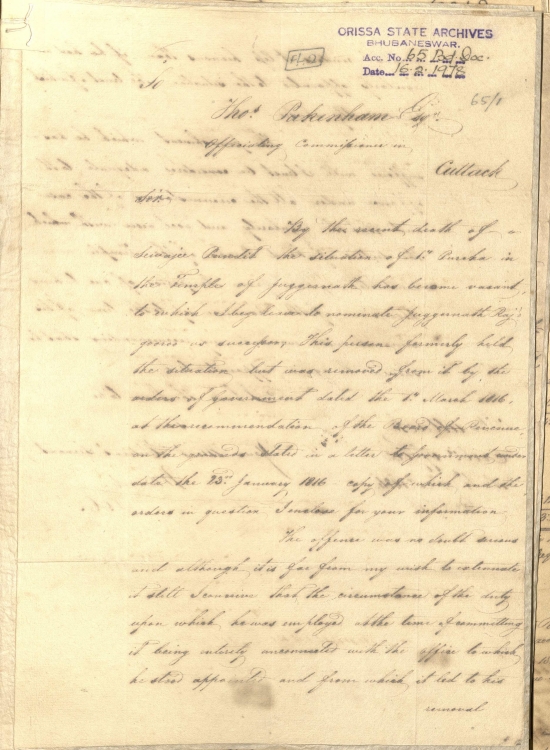 ORISSA STATE ARCHIVES
BHUBANESWAR.
Acc. No. 65 Bd Doc.
Date 16-2-1978
65/1
To
Thos. Pakenham Esqr.
Officiating Commissioner in
Cuttack
Sir
By the recent death of a
Sewajee Pundit the situation of Purcha in
the Temple of Juggernath has become vacant,
to which I beg leave to nominate Juggernath Raj
as successor, This person formerly held
the situation but was removed from it by the
orders of government dated the 1st March 1816,
at the recommendation of the Board of Revenue,
on the grounds stated in a letter to government under
date the 23rd January 1816 copy of which and the
orders in question I enclose for your information
The offence was no doubt serious
and although it is far from my wish to extenuate
it still I conceive that the circumstance of the duty
upon which he was employed at the time of committing
it being entirely unconnected with the office to which
he stood appointed and from which it led to his
removal